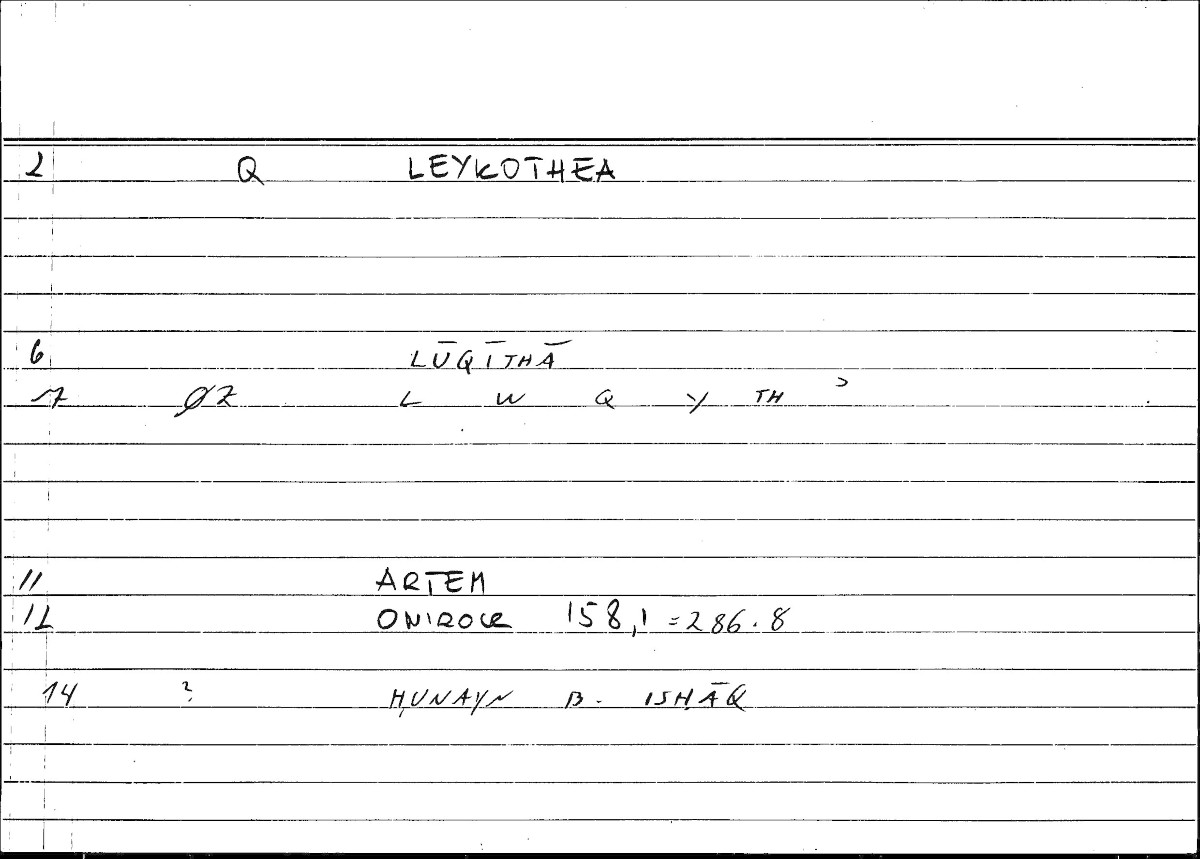 2 Q LEYKOTHEA
6 LŪQĪTHĀ
7 ØZ L W Q Y TH ʾ
11 ARTEM
12 ONIROCR 158,1 = 286.8
14 ? ḤUNAYN B. ISḤĀQ